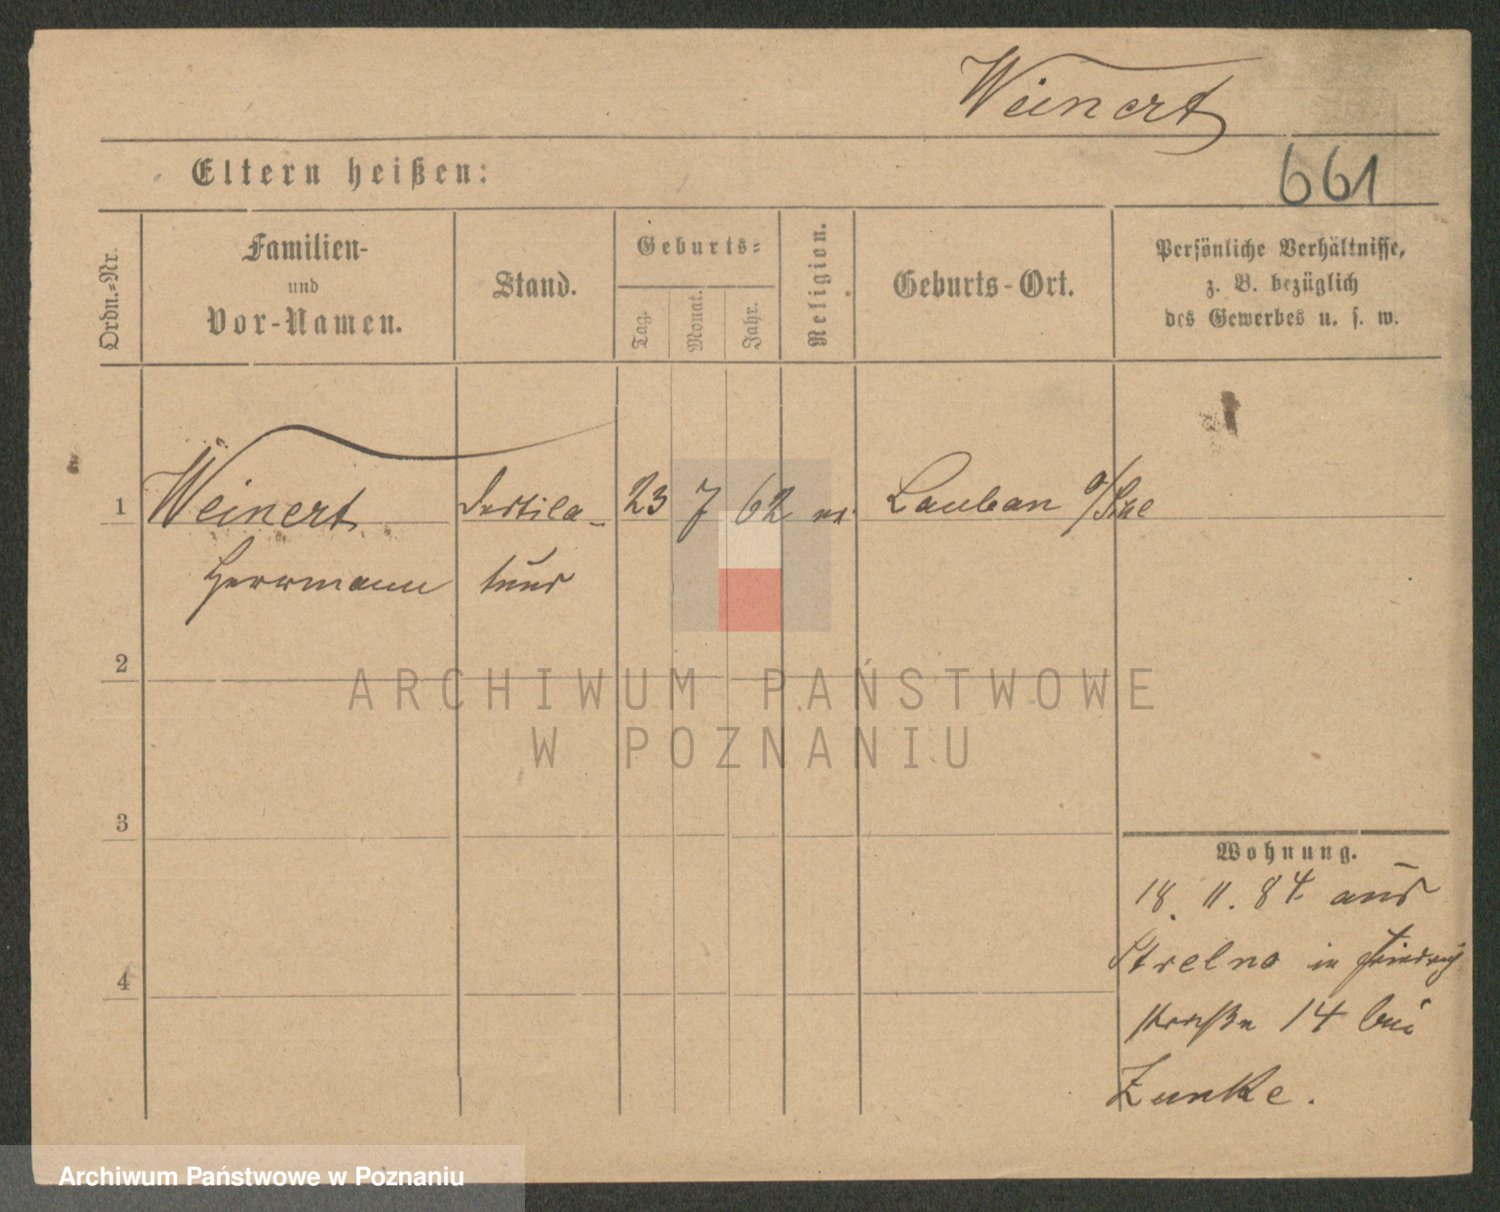 Weinert
Eltern heißen:
661
Ordn.=Nr.
Familien-
und
Vor-Namen.
Stand.
Geburts=
Tag.
Monat.
Jahr.
Religion.
Geburts-Ort.
Persönliche Verhältnisse,
z. B. bezüglich
des Gewerbes u. s. w.
1 Weinert Destila- 23 7 62 Lauban
Herrmann teur
2
ARCHIWUM PAŃSTWOWE
W POZNANIU
3
4
Wohnung.
18. 11. 84 aus
Strelno in Friedrich
straße 14 bei
Zunke.
Archiwum Państwowe w Poznaniu